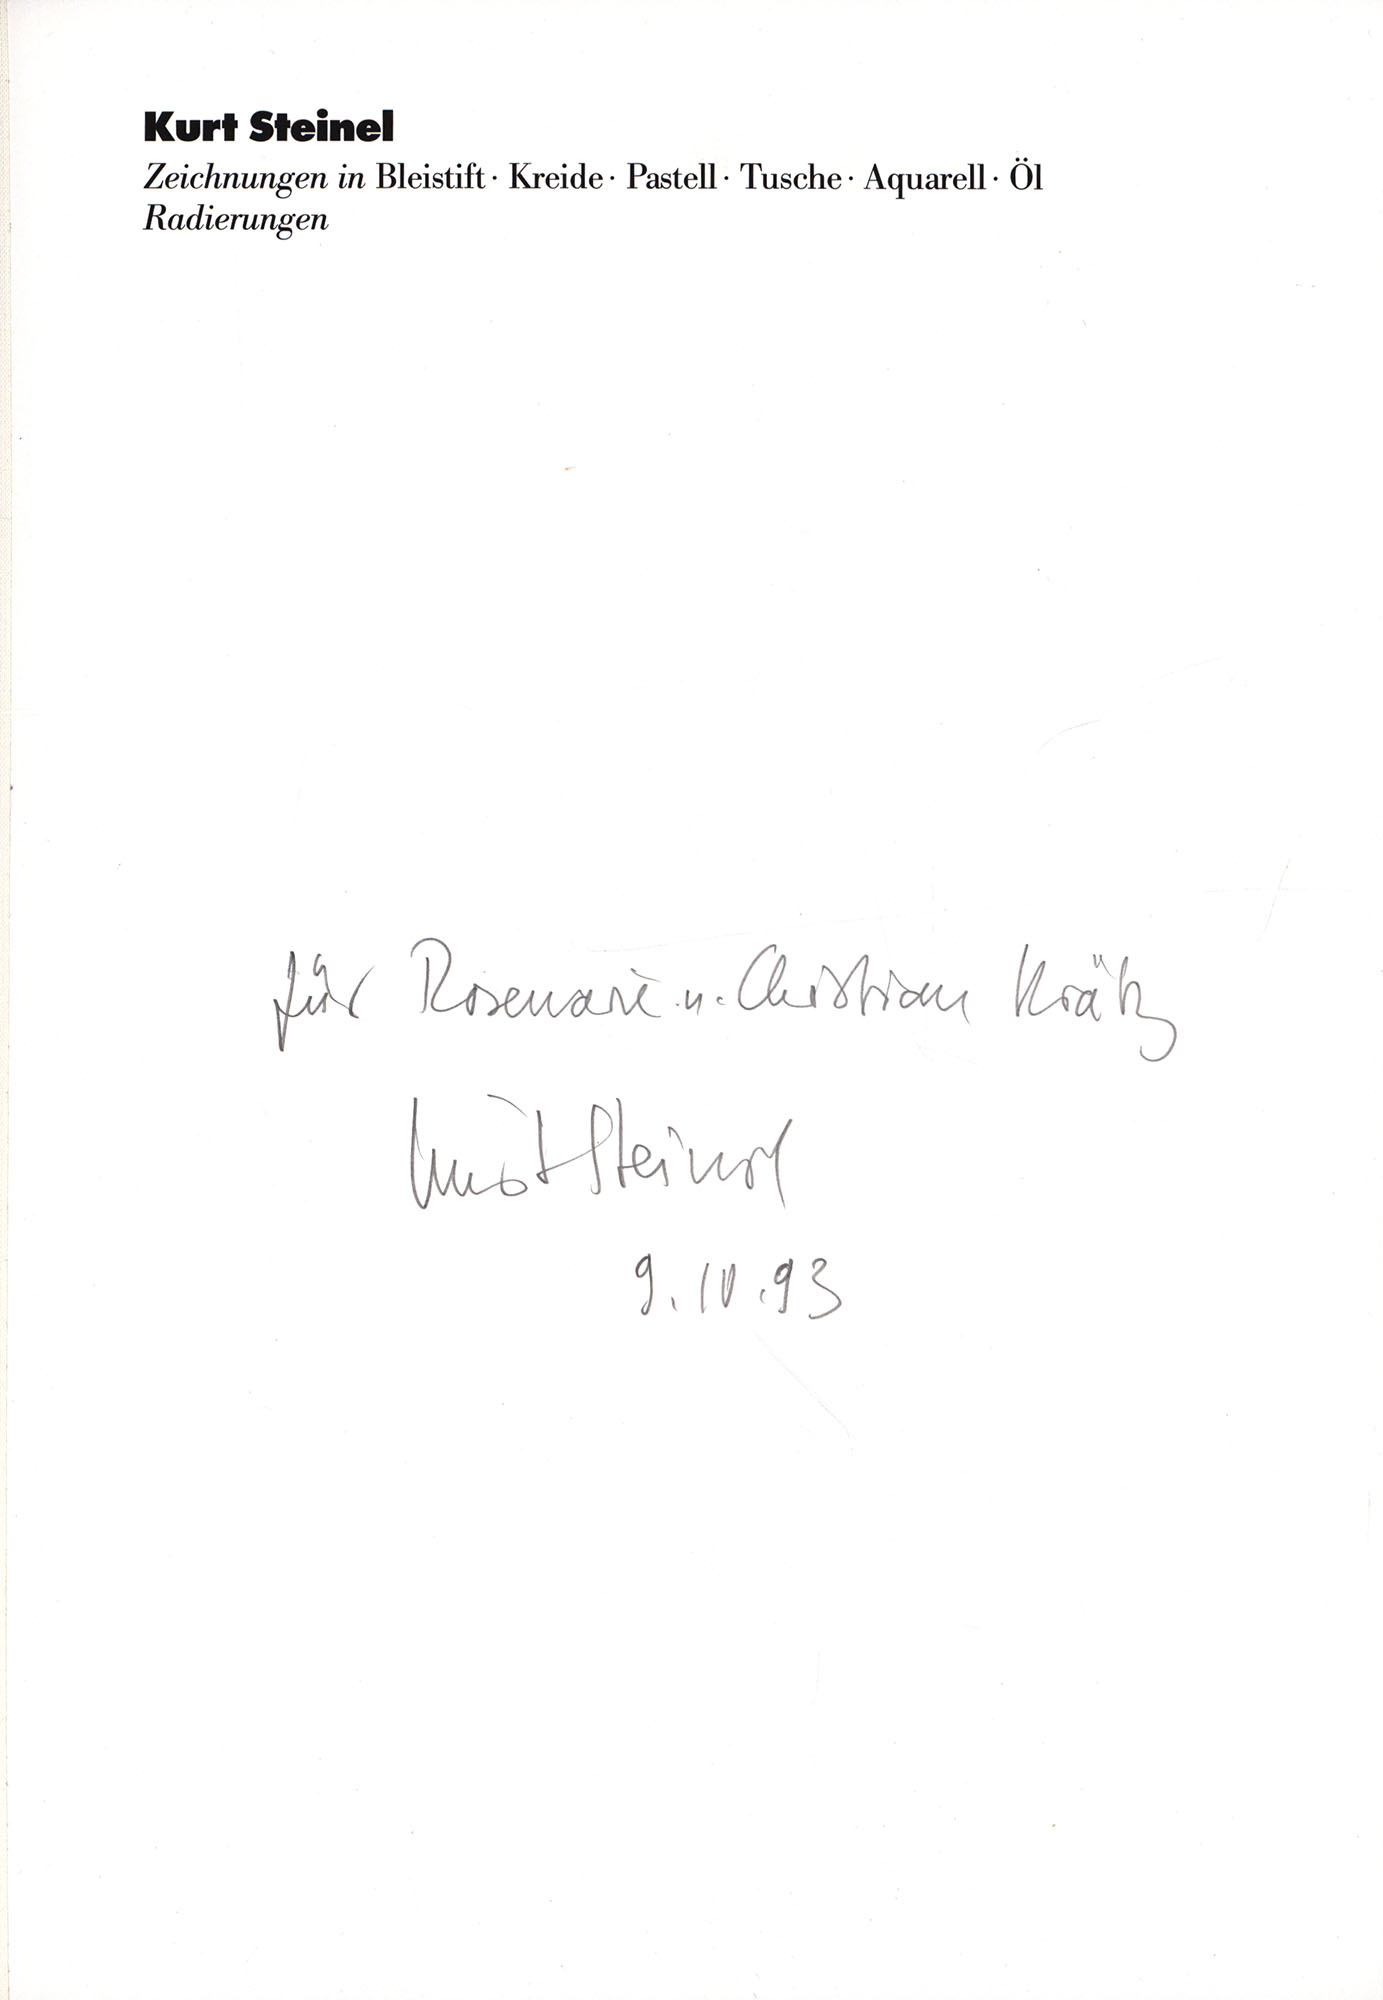 Kurt Steinel
Zeichnungen in Bleistift · Kreide · Pastell · Tusche · Aquarell · Öl
Radierungen
für Rosemarie u. Christian Krätz
Kurt Steinel
9.10.93